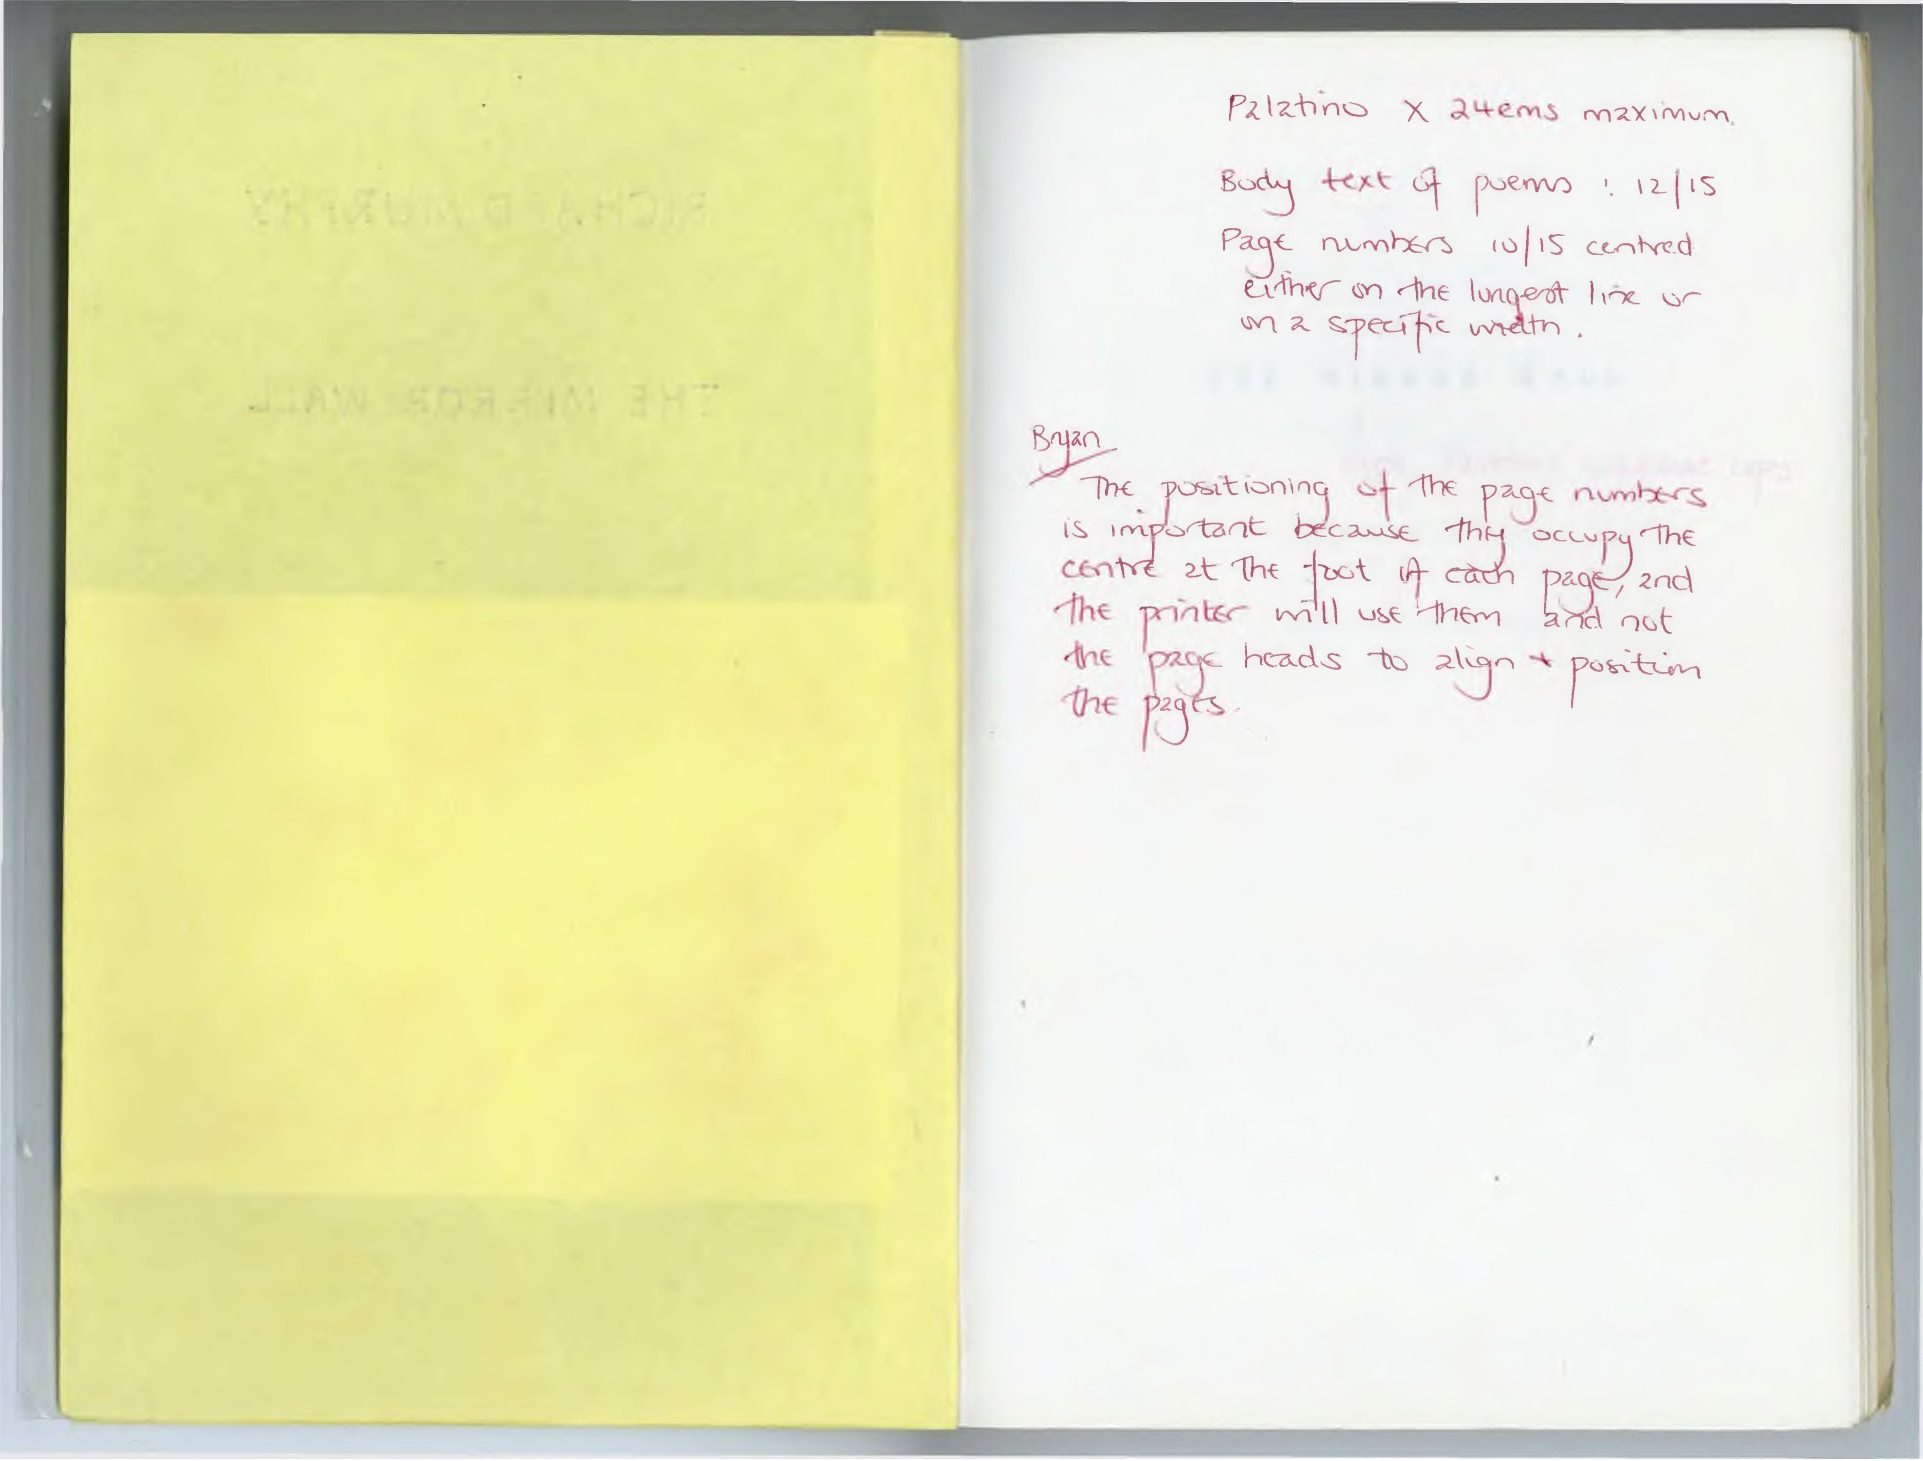 RICHARD MURPHY
THE MIRROR WALL
Palatino X 24ems maximum.
Body text of poems : 12/15
Page numbers 10/15 centred
either on the longest line or
on a specific width.
THE MIRROR WALL
Bryan
The positioning of the page numbers
is important because they occupy the
centre at the foot of each page, and
the printer will use them and not
the page heads to align + position
the pages.